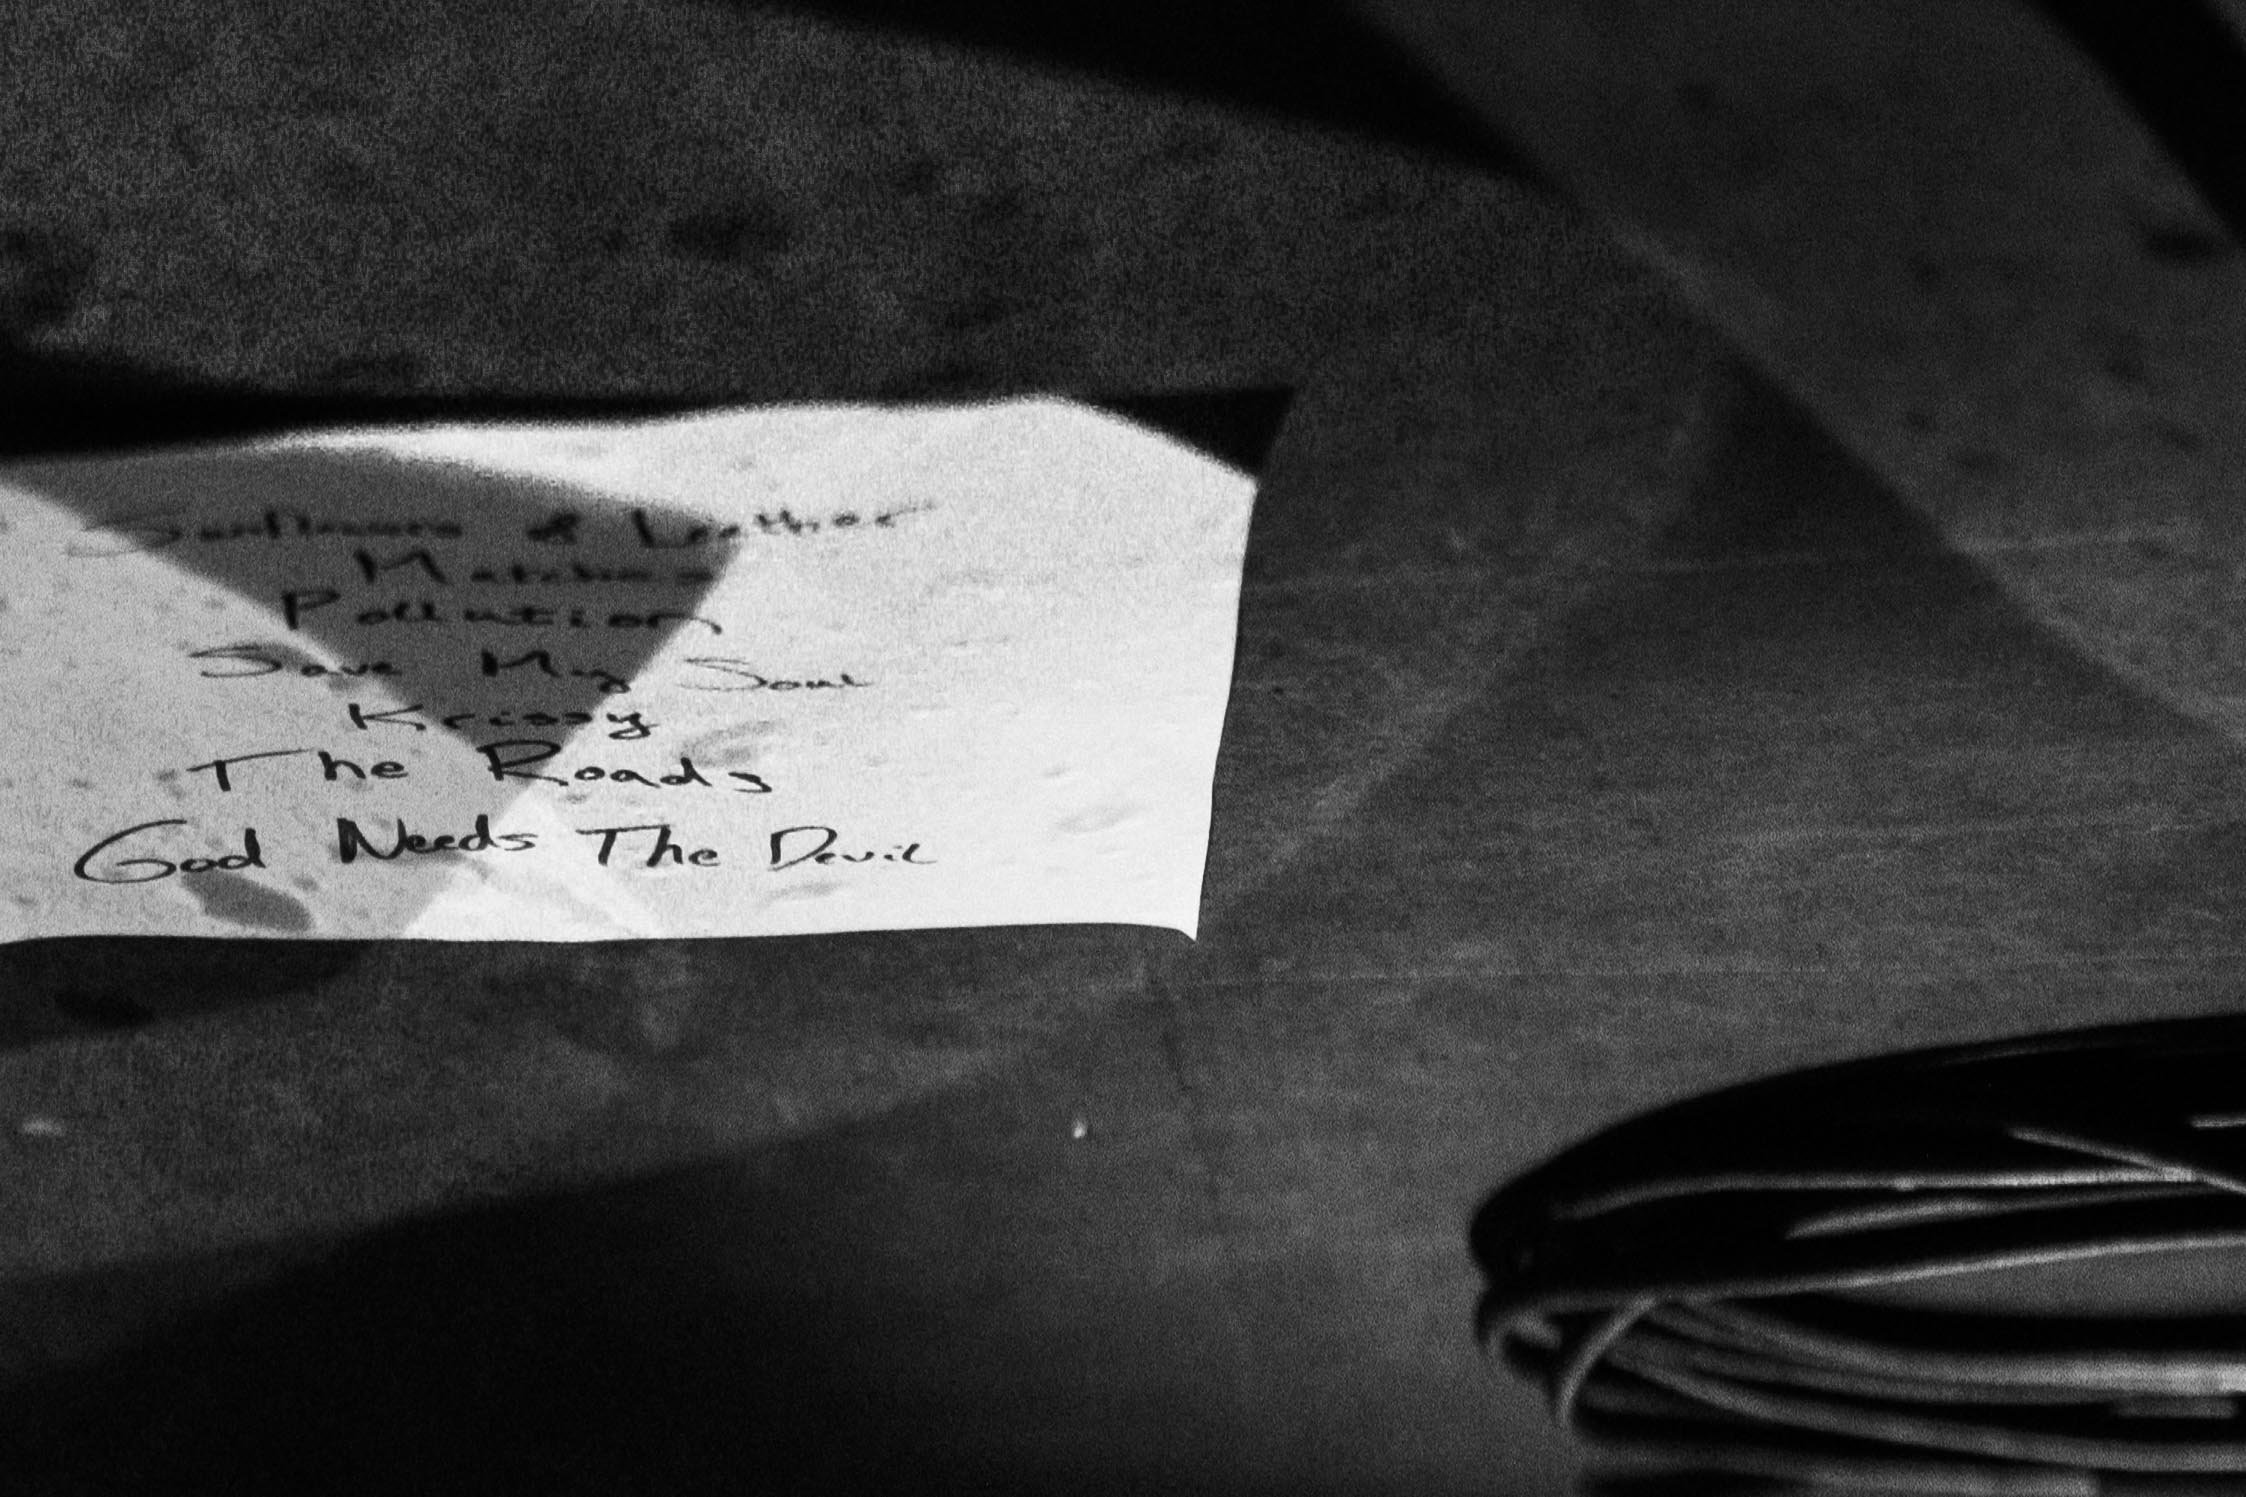 Sunflowers & Leather
Matches
Pollution
Save My Soul
Krissy
The Roads
God Needs The Devil